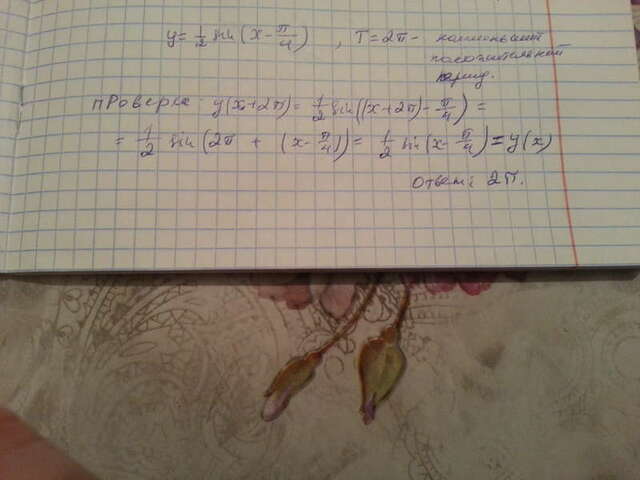 y = 1/2 sin(x - π/4) , T = 2π - наименьший
положительный
период.
проверка: y(x+2π) = 1/2 sin((x+2π) - π/4) =
= 1/2 sin(2π + (x - π/4)) = 1/2 sin(x - π/4) = y(x)
Ответ: 2π.